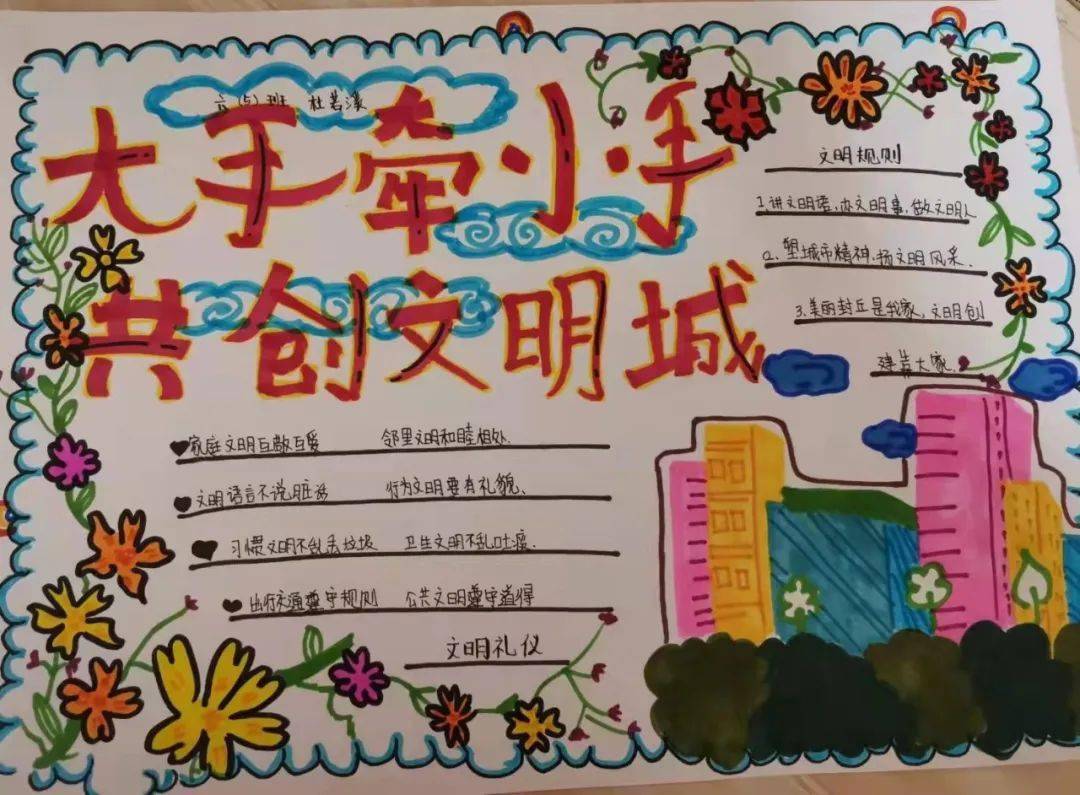 六(5)班 杜若漾
大手牵小手
共创文明城
文明规则
1.讲文明语,办文明事,做文明人
2.塑城市精神,扬文明风采.
3.美丽封丘是我家,文明创
建靠大家.
家庭文明互敬互爱 邻里文明和睦相处.
文明语言不说脏话 行为文明要有礼貌、
习惯文明不乱丢垃圾 卫生文明不乱吐痰.
出行交通遵守规则 公共文明遵守道德
文明礼仪